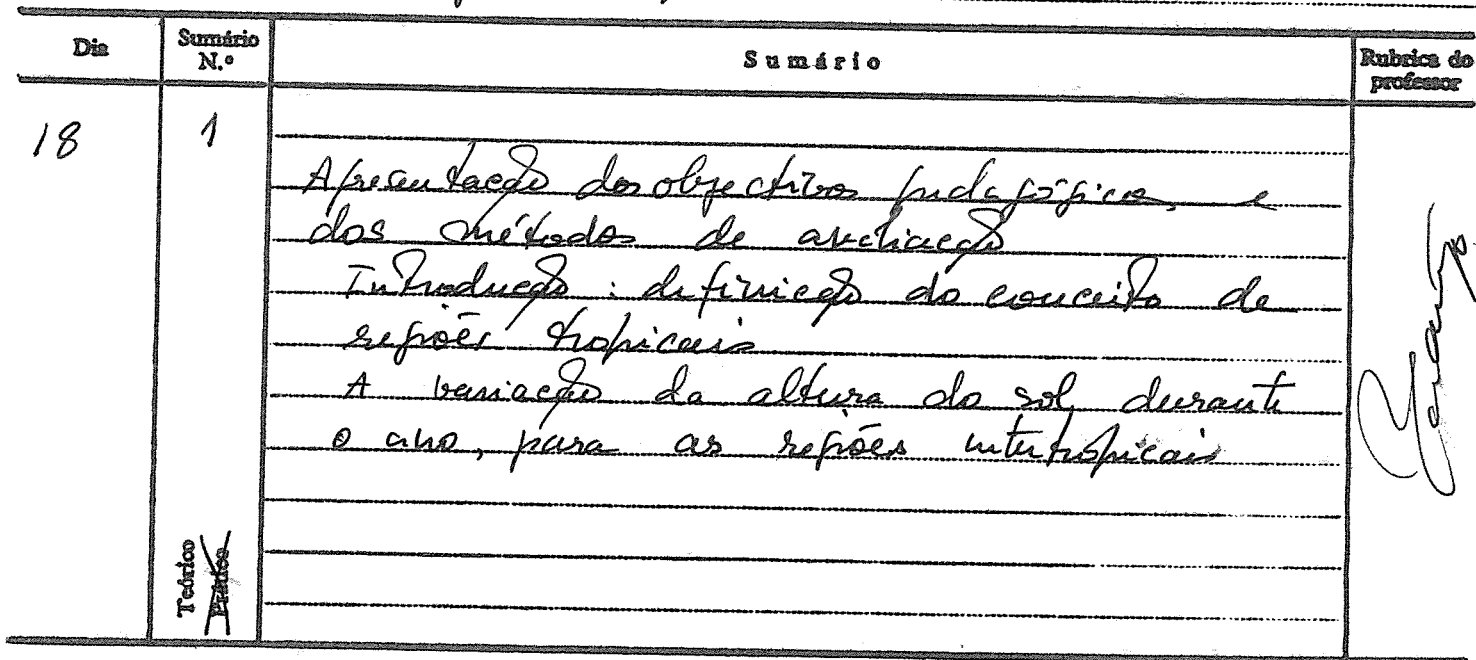 Dia Sumário N.º Sumário Rubrica do professor
18 1
Apresentação dos objectivos pedagógicos, e
dos métodos de avaliação
Introdução : definição do conceito de
regiões tropicais
A variação da altura do sol, durante
o ano, para as regiões intertropicais
Teórico
Prático